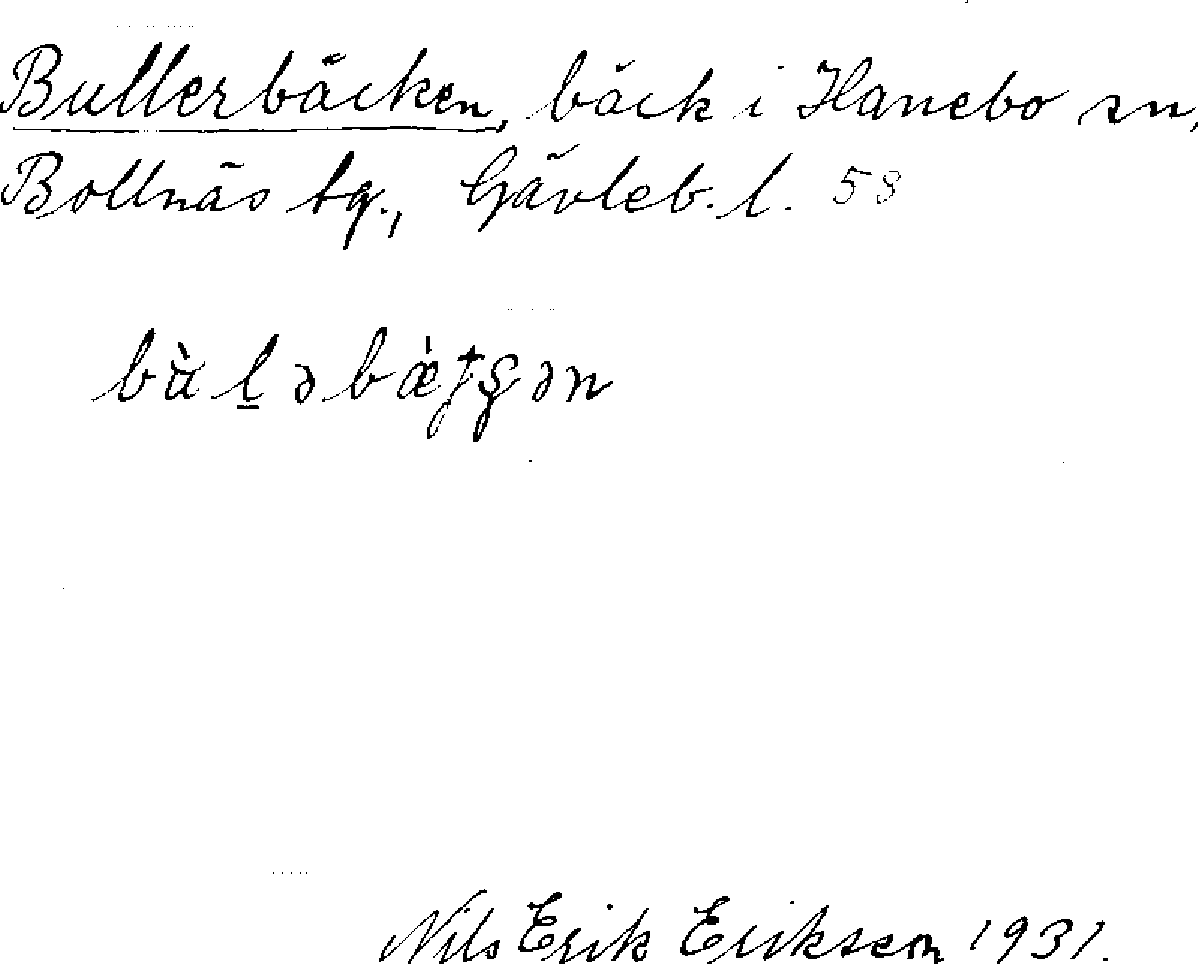 Bullerbäcken, bäck i Hanebo sn,
Bollnäs tg., Gävleb. l. 58
Nils Erik Eriksson 1931.